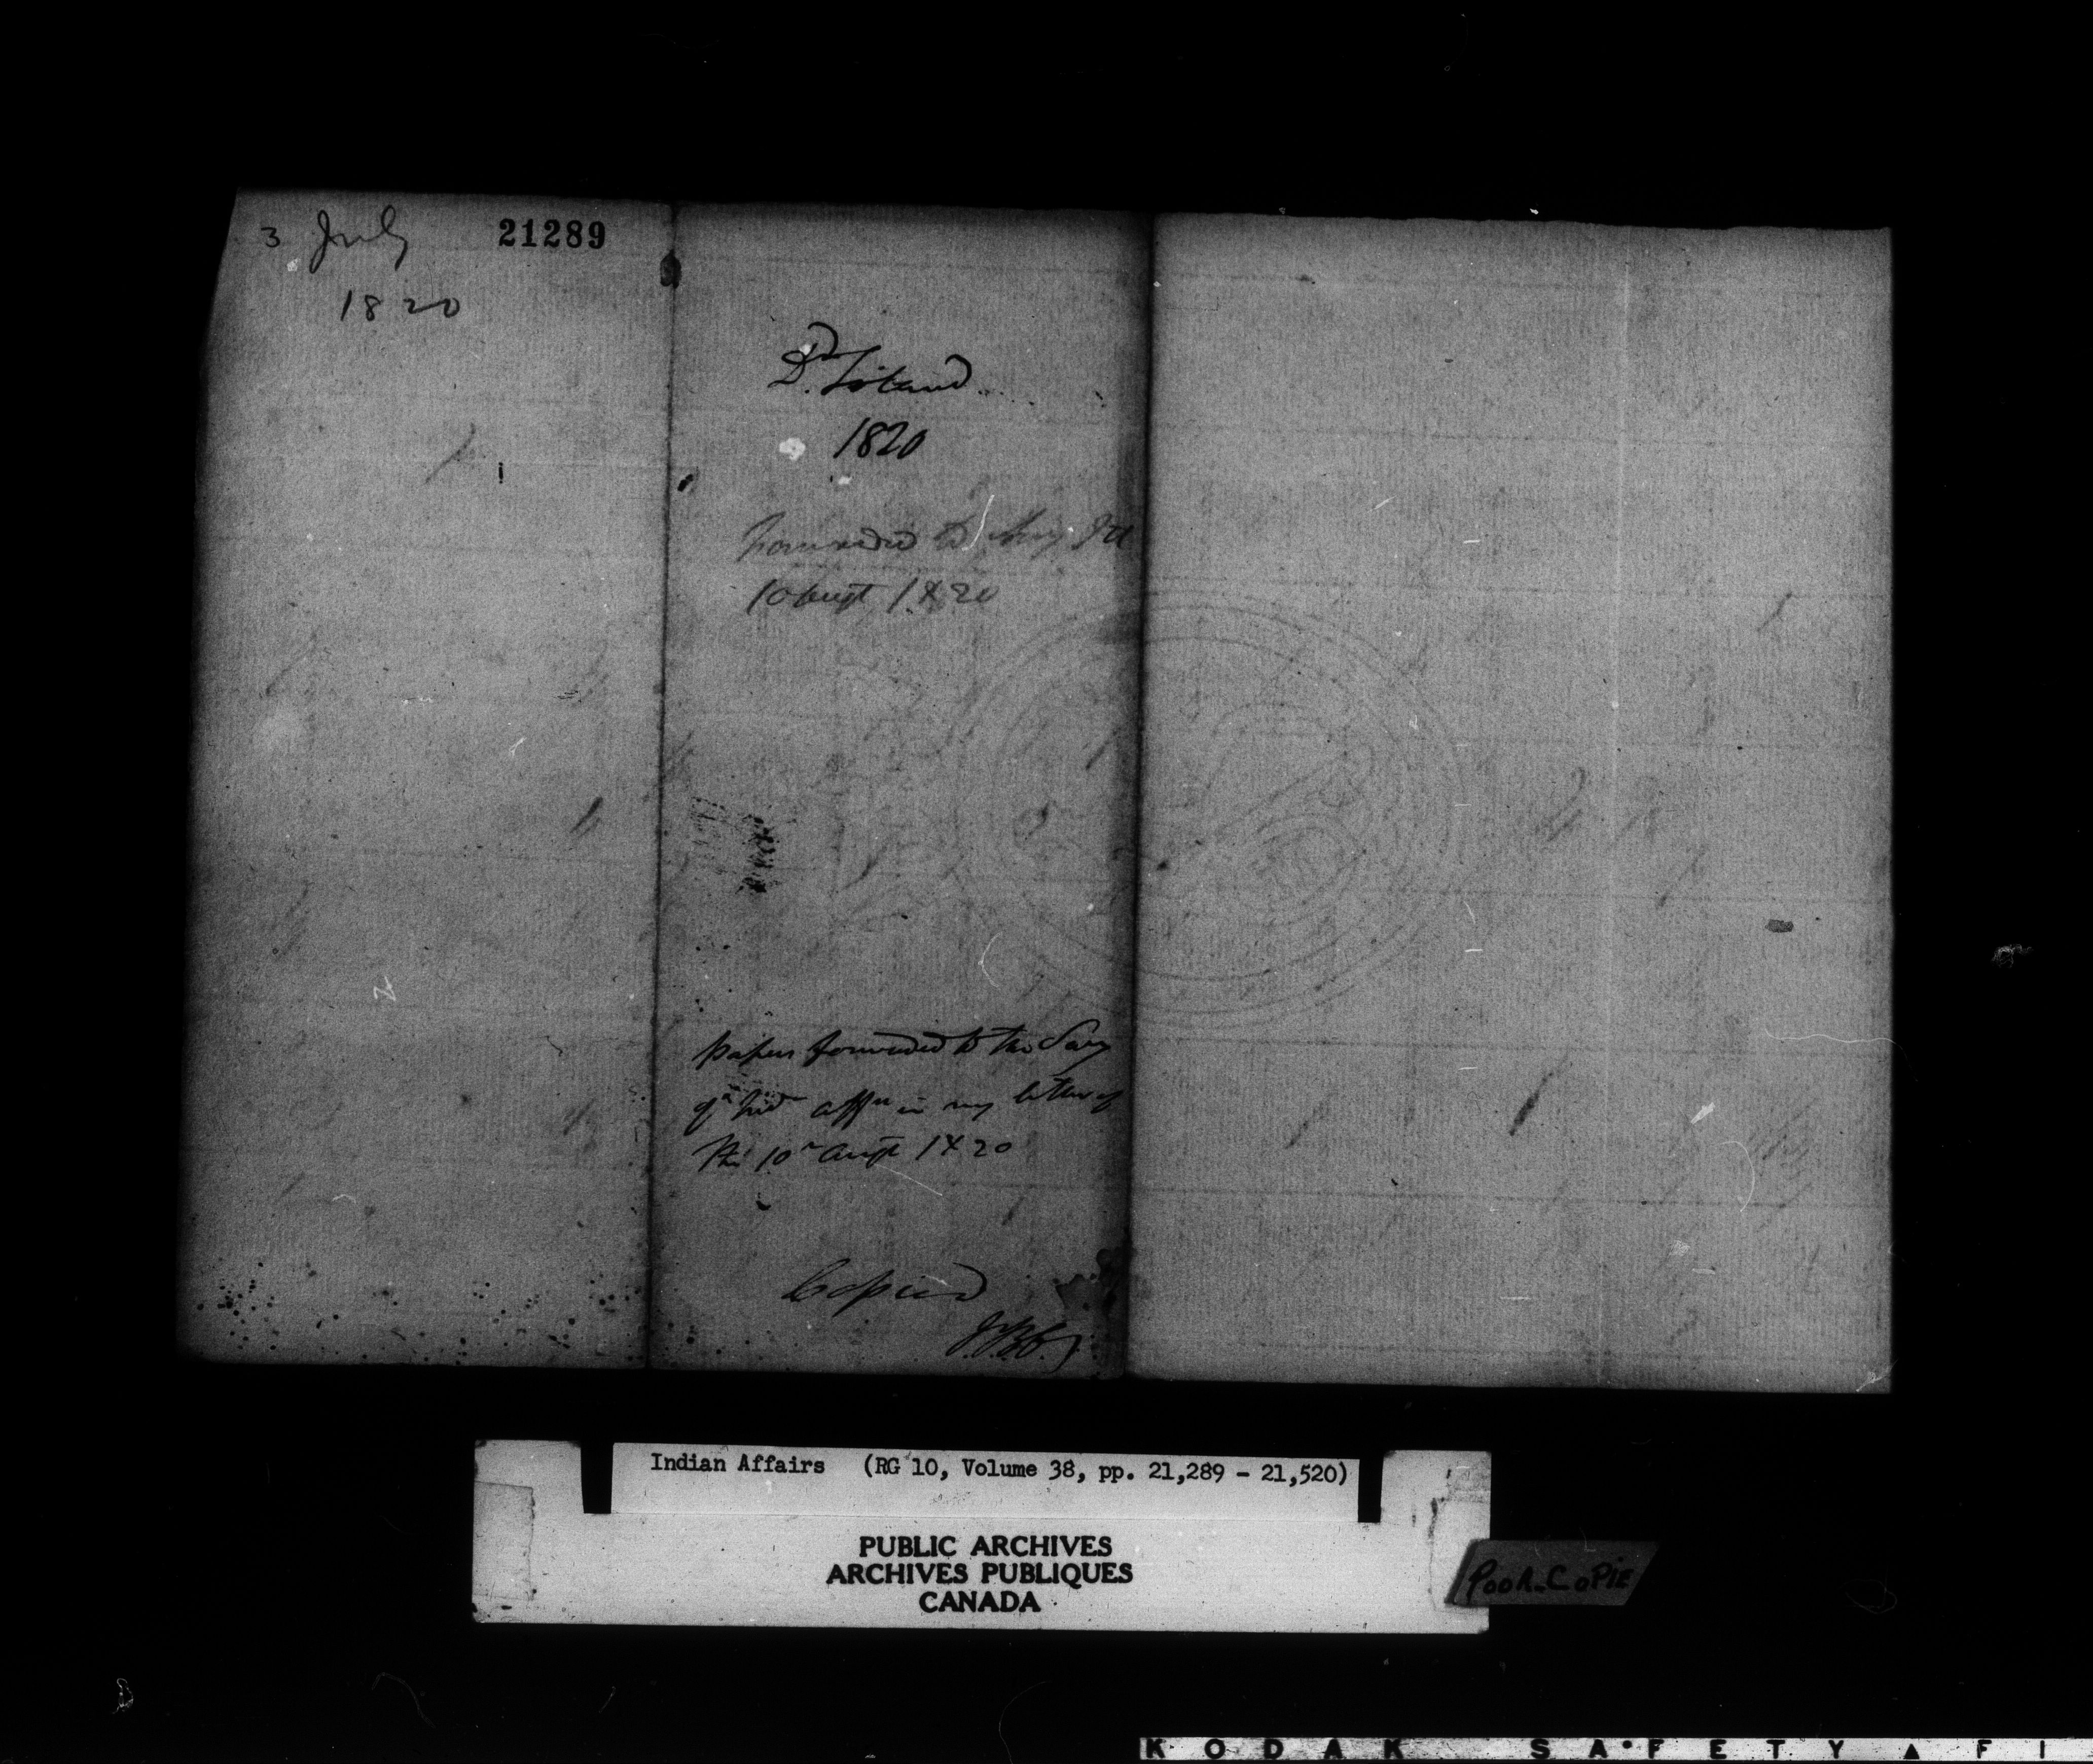 3 July 21289
1820
Dr.
1820
Forwarded to
10 Augt 1820
papers forwarded to the Secy
of Ind affrs in my letter of
the 10th Augt 1820
Copied
Indian Affairs (RG 10, Volume 38, pp. 21,289 - 21,520)
PUBLIC ARCHIVES
ARCHIVES PUBLIQUES
CANADA
POOR COPIE
KODAK SAFETY FI